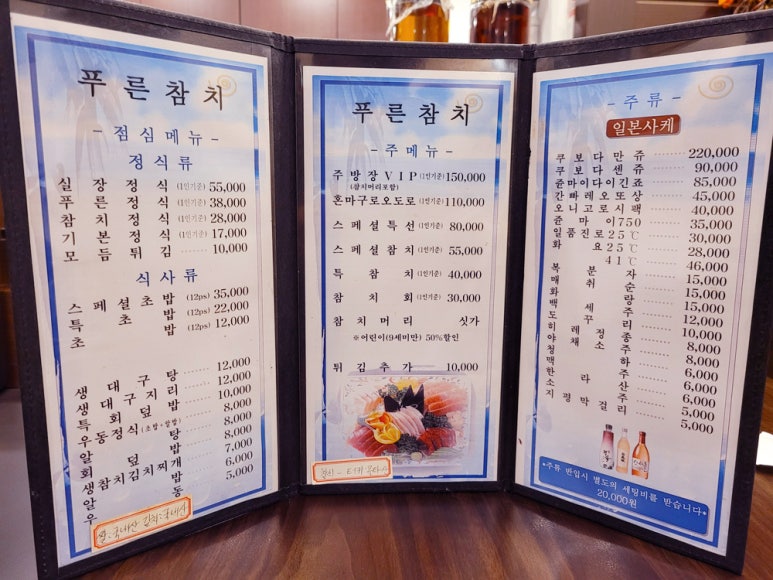 푸른참치
- 점심메뉴 -
정식류
실장정식 (1인기준) 55,000
푸른정식 (1인기준) 38,000
참치정식 (1인기준) 28,000
기본정식 (1인기준) 17,000
모듬튀김 10,000
식사류
스페셜초밥 (12ps) 35,000
특초밥 (12ps) 22,000
초밥 (12ps) 12,000
생대구탕 12,000
생대구지리 12,000
특회덮밥 10,000
우동정식(초밥+알밥) 8,000
알탕 8,000
회덮밥 8,000
생참치김치찌개 7,000
알밥 6,000
우동 5,000
쌀:국내산 김치:국내산
푸른참치
- 주메뉴 -
주방장VIP (1인기준) 150,000
(참치머리포함)
혼마구로오도로 (1인기준) 110,000
스페셜특선 (1인기준) 80,000
스페셜참치 (1인기준) 55,000
특참치 (1인기준) 40,000
참치회 (1인기준) 30,000
참치머리 싯가
※어린이(9세미만) 50%할인
튀김추가 10,000
- 주류 -
일본사케
쿠보다만쥬 220,000
쿠보다센쥬 90,000
쥰마이다이긴죠 85,000
간빠레오또상 45,000
오니고로시팩 40,000
쥰마이750 35,000
일품진로25℃ 30,000
화요25℃ 28,000
41℃ 46,000
복분자 15,000
매취순 15,000
화랑 15,000
백세주 12,000
도꾸리 10,000
히레정종 8,000
야채소주 8,000
청하 6,000
맥주 6,000
한라산 6,000
소주 5,000
지평막걸리 5,000
*주류 반입시 별도의 세팅비를 받습니다*
20,000원